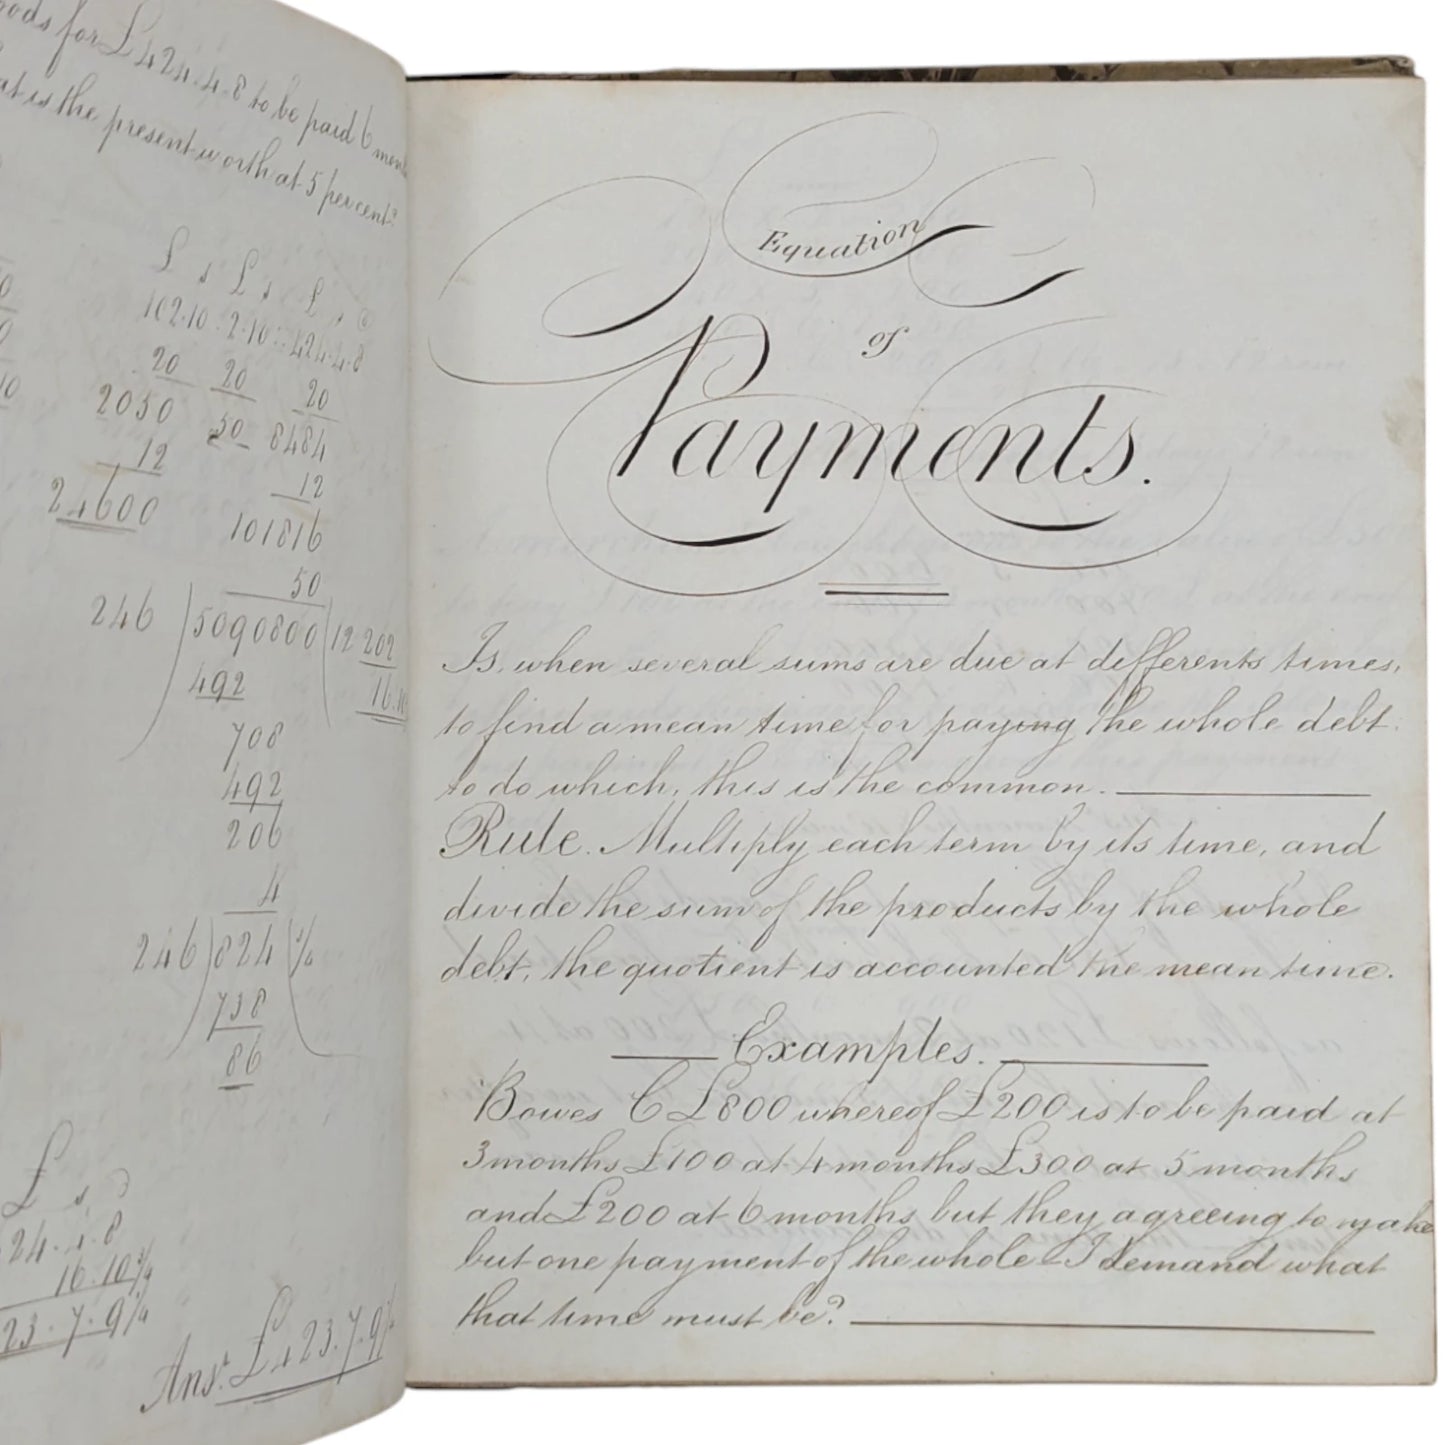 for £424.4.8 to be paid 6
is the present worth at 5 per cent?
£ s £ s £ s d
102.10 : 2.10 :: 424.4.8
20 20 20
2050 50 8484
12 12
24600 101816
50
246 ) 5090800 ( 12 202
492 16.10
708
492
206
4
246 ) 824 (
738
86
£ s d
24. . 8
16.10 3/4
23.7.9 1/4
Ans.r £423.7.9 1/4
Equation
of
Payments.
Is, when several sums are due at differents times,
to find a mean time for paying the whole debt.
to do which, this is the common.
Rule. Multiply each term by its time, and
divide the sum of the products by the whole
debt, the quotient is accounted the mean time.
Examples.
B owes C £800 whereof £200 is to be paid at
3 months £100 at 4 months £300 at 5 months
and £200 at 6 months but they agreeing to make
but one payment of the whole I demand what
that time must be?